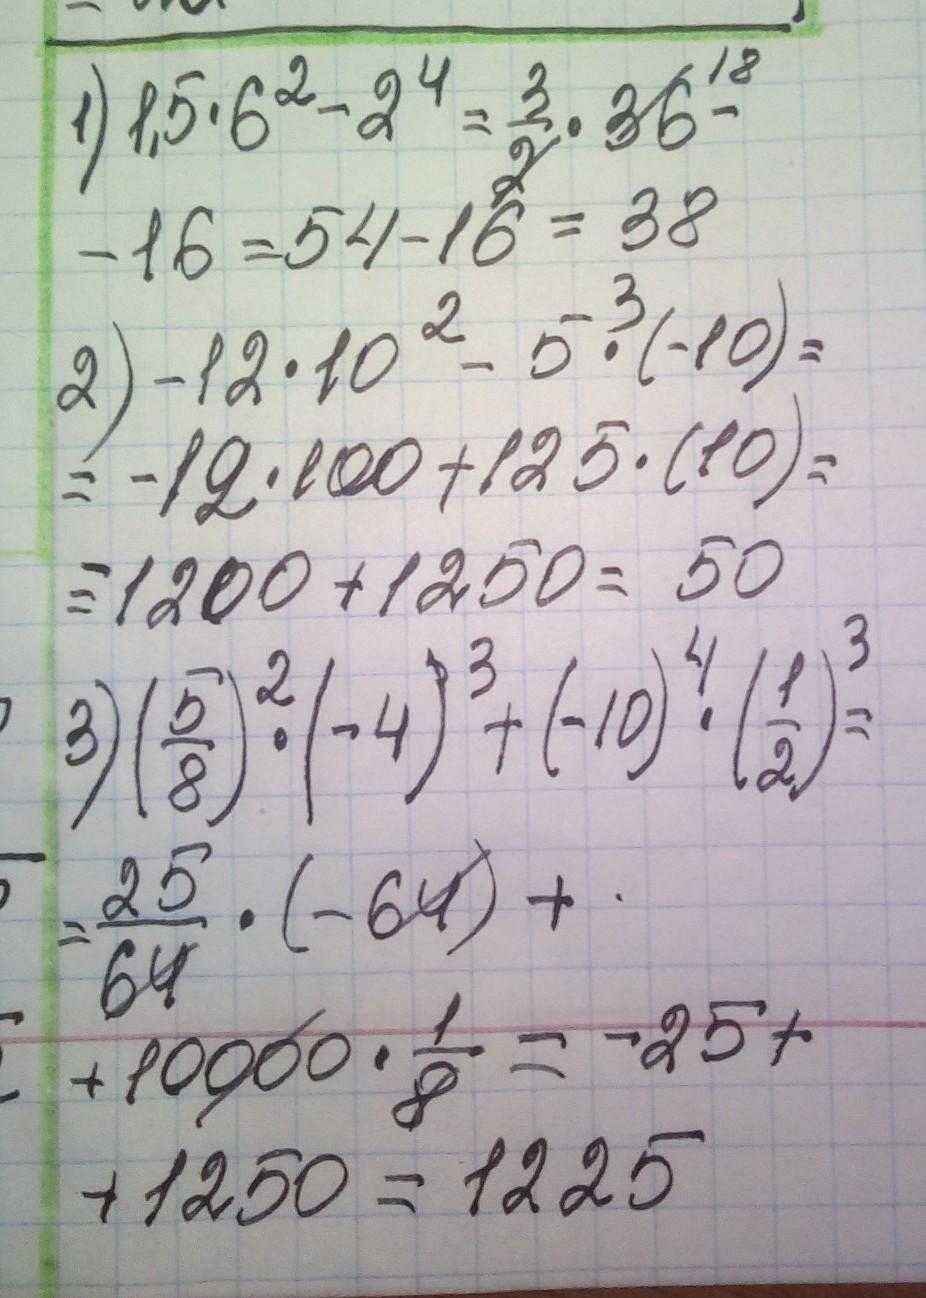 1) 1,5·6² - 2⁴ = 3/2 · 36 18 -
- 16 = 54 - 16 = 38
2) -12·10² - 5³·(-10) =
= -12·100 + 125·(10) =
= 1200 + 1250 = 50
3) (5/8)²·(-4)³ + (-10)⁴·(1/2)³ =
= 25/64 · (-64) +
+ 10000 · 1/8 = -25 +
+ 1250 = 1225